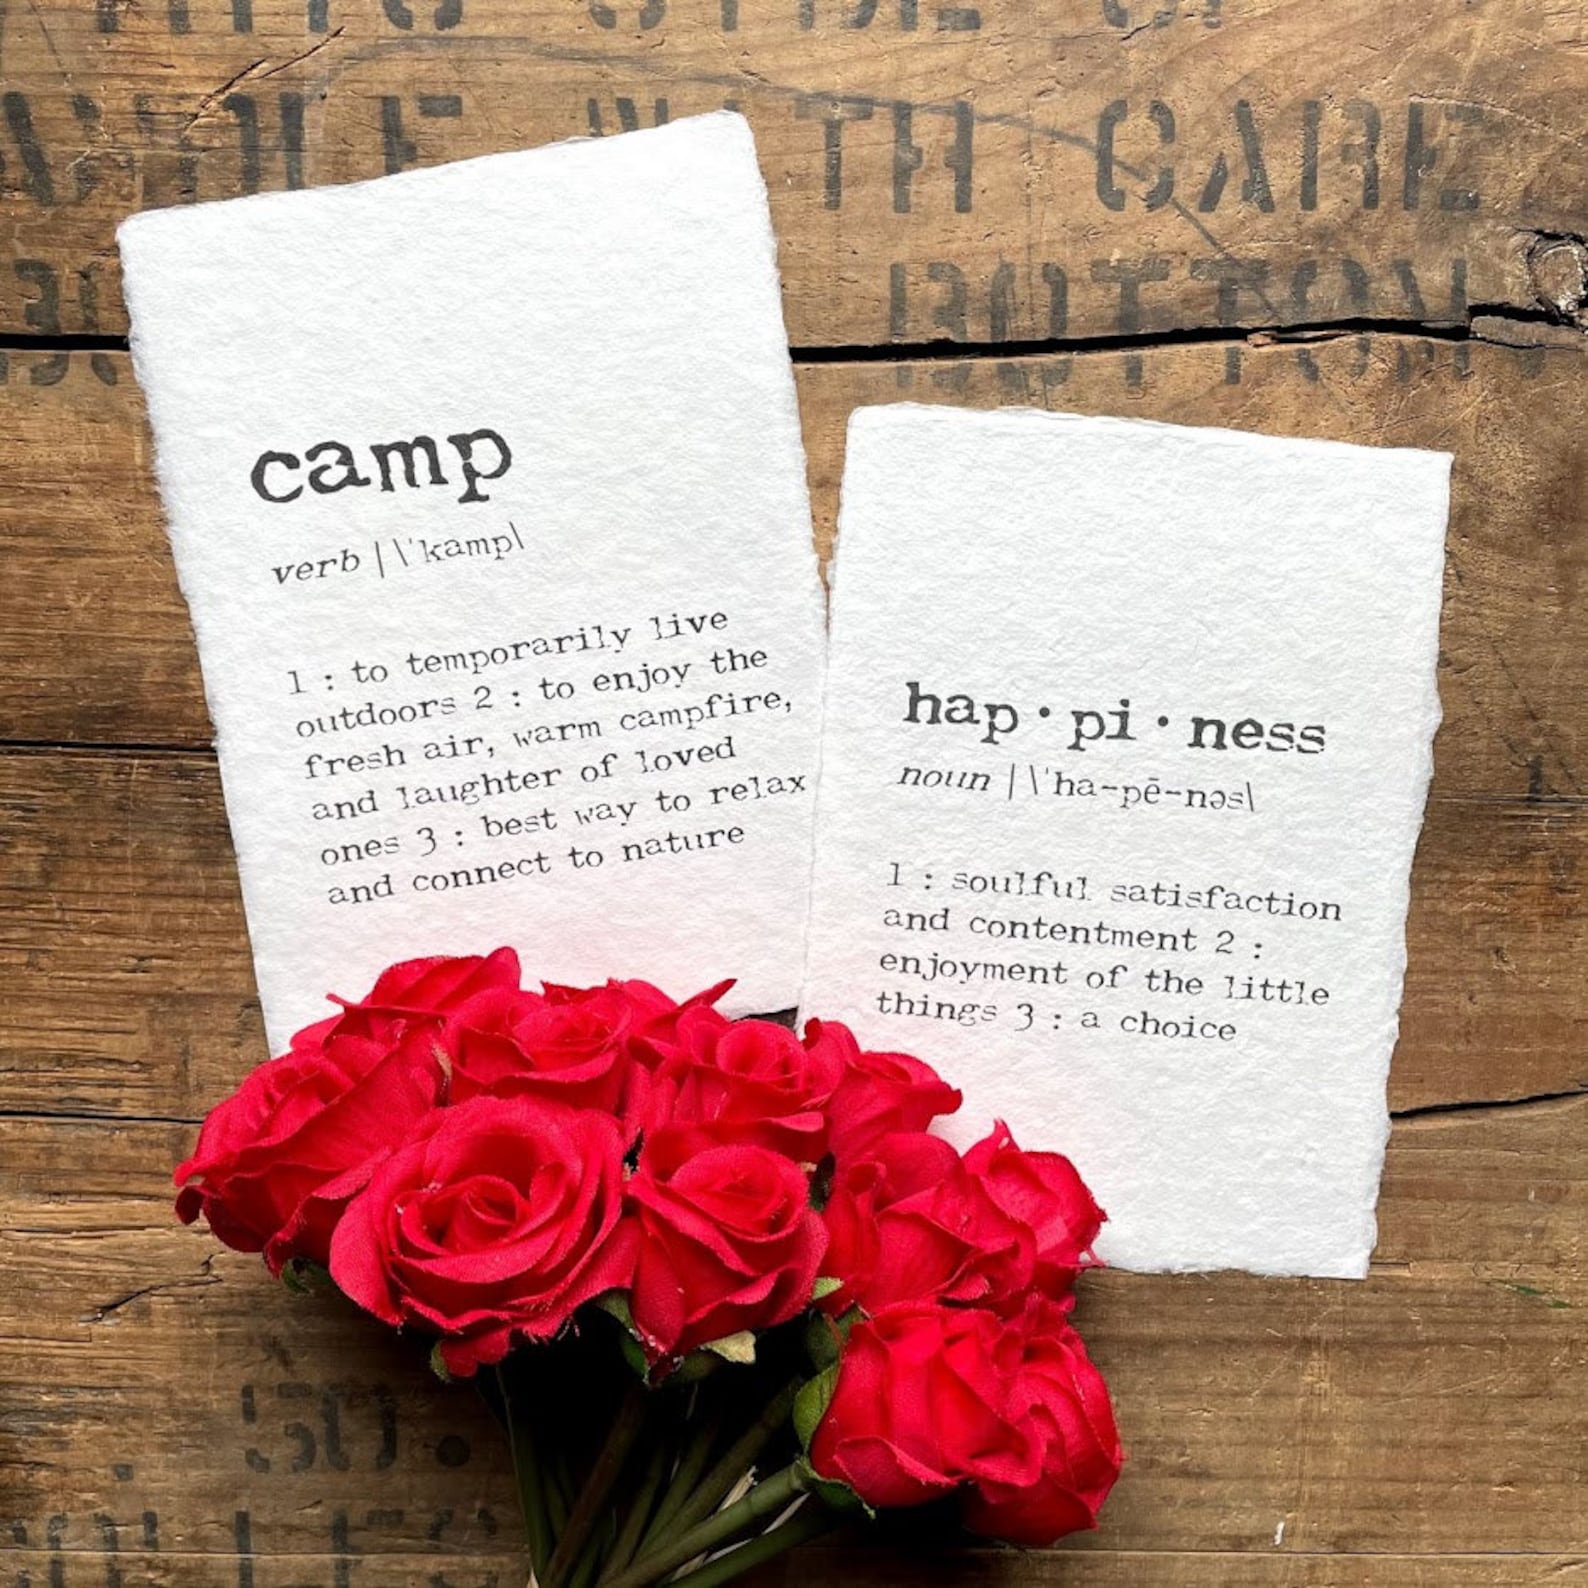 WITH CARE
BOTTOM
camp
verb | \ˈkamp\
1 : to temporarily live
outdoors 2 : to enjoy the
fresh air, warm campfire,
and laughter of loved
ones 3 : best way to relax
and connect to nature
hap·pi·ness
noun | \ˈha-pē-nəs\
1 : soulful satisfaction
and contentment 2 :
enjoyment of the little
things 3 : a choice
50.